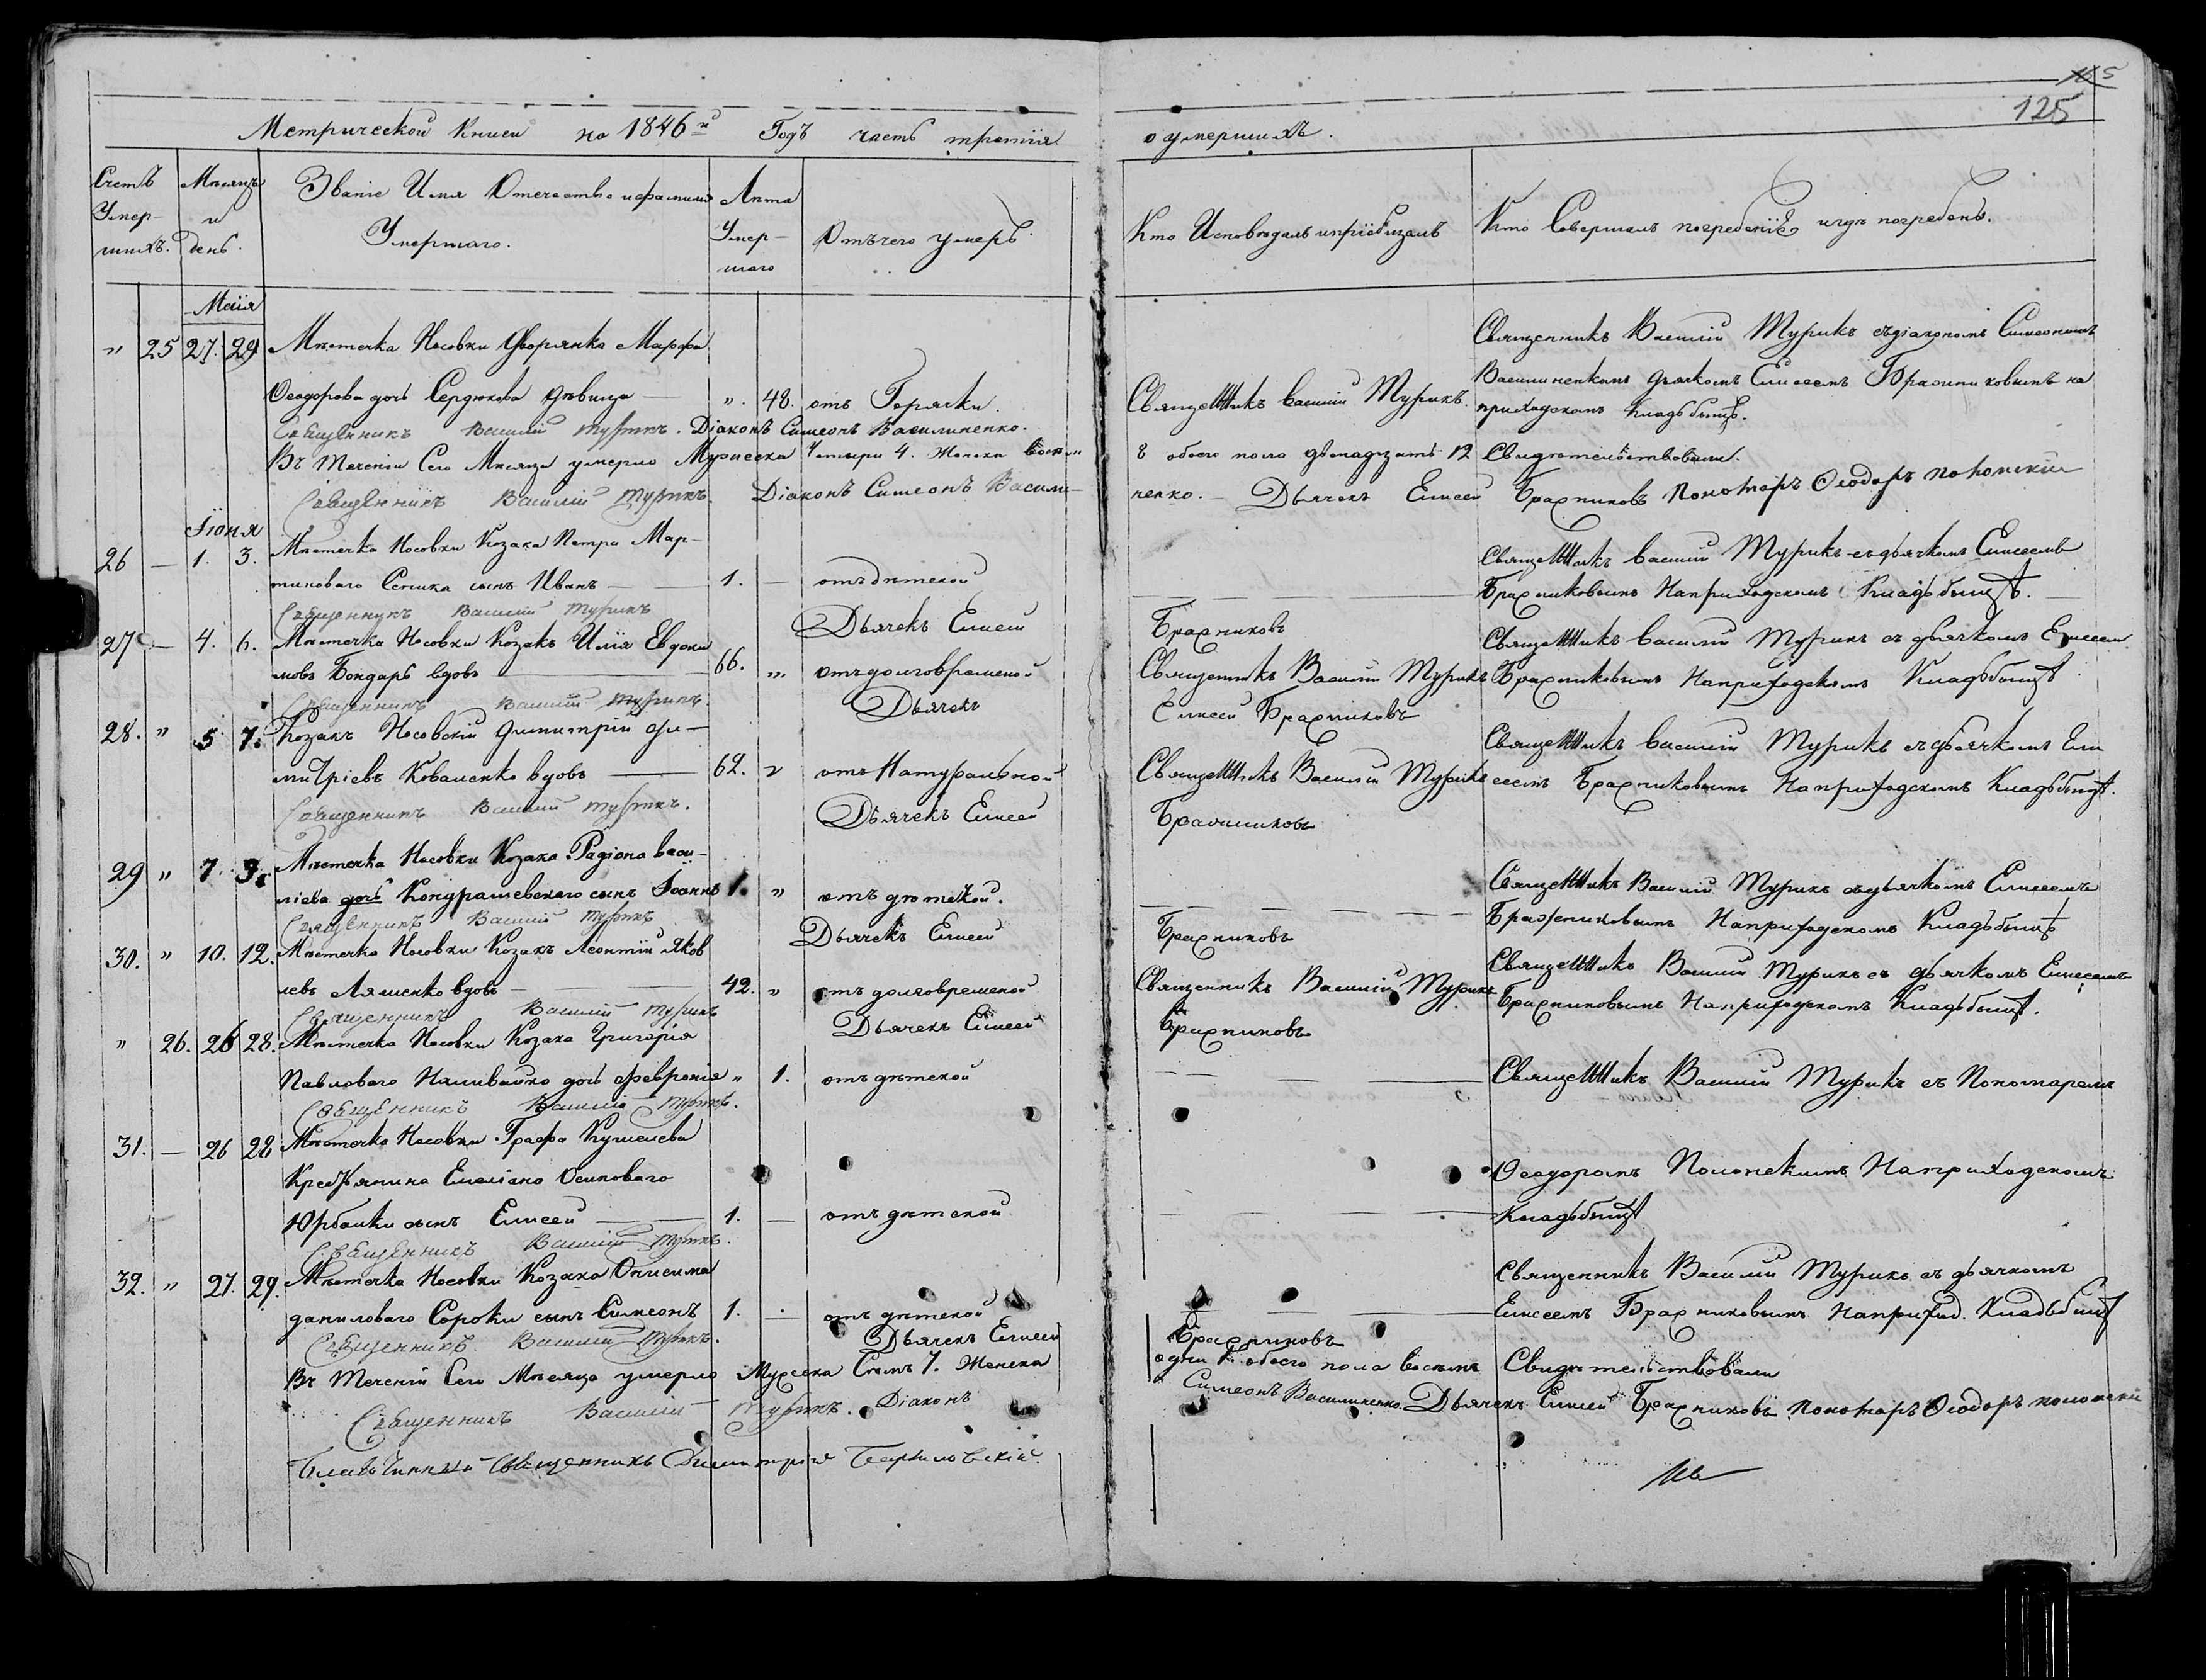 125
Метрической Книги на 1846й Годъ часть третїя о умершихъ.
Счетъ Умер-шихъ.
Мѣсяцъ и день.
Званіе Имя Отечество и фамилия Умершаго.
Лѣта Умер-шаго
Отъ чего умеръ.
Кто Исповѣдалъ и пріобщалъ
Кто Совершалъ погребенїе и гдѣ погребенъ.
Маія
" 25 27. 29 Мѣстечка Носовки Дворянка Марфа
Ѳеодорова дочь Сердюкова дѣвица — ". 48. отъ Горячки.
Священникъ Василій Турикъ.
Священникъ Василій Турикъ съ діакономъ Симеономъ
Василиненкомъ дьячкомъ Елисеемъ Бражниковымъ на
приходскомъ Кладбыщѣ.
Священникъ Василий Турикъ. Діаконъ Симеонъ Василиненко.
Въ Теченіи Сего Мѣсяца умерло Мужеска Четыри 4. Женска восем 8 обоего пола двенадцать 12 Свидѣтельствовали.
Священникъ Василій Турикъ. Діаконъ Симеонъ Васили-
ненко. — Дьячекъ Елисей Бражниковъ Пономаръ Ѳеодоръ Полонскій
Іюня
26 — 1. 3. Мѣстечка Носовки Козака Петра Мар-
тиноваго Сепика сынъ Иванъ — 1. — отъ дѣтской
Священникъ Василій Турикъ съ дьячкомъ Елисеемъ
Бражниковымъ На приходскомъ Кладбыщѣ.
Священникъ Василій Турикъ Дьячекъ Елисей Бражниковъ
27 — 4. 6. Мѣстечка Носовки Козакъ Илія Евдоки
мовъ Бондарь вдовъ — 66. " отъ долговременой
Священникъ Василій Турикъ
Священникъ Василій Турикъ съ дьячкомъ Елисеем
Бражниковымъ На приходскомъ Кладбыщѣ
Священникъ Василій Турикъ. Дьячекъ Елисей Бражниковъ
28. " 5 7. Козакъ Носовскій Димитрій Ди-
митріевъ Коваленко вдовъ — 62. " отъ Натуральной
Священникъ Василій Турикъ
Священникъ Василій Турикъ съ дьячкомъ Ели
сеемъ Бражниковымъ На приходскомъ Кладбыщѣ.
Священникъ Василий Турикъ. Дьячекъ Елисей Бражниковъ
29 " 7. 9. Мѣстечка Носовки Козака Радіона Васи-
ліева дочь Кондрашевскаго сынъ Іоаннъ 1. " отъ дѣтской.
Священникъ Василій Турикъ съ дьячкомъ Елисеемъ
Бражниковымъ На приходскомъ Кладбыщѣ
Священникъ Василий Турикъ Дьячекъ Елисей Бражниковъ
30. " 10. 12. Мѣстечка Носовки Козакъ Леонтій Яков
левъ Ляшенко вдовъ — 42. " отъ долговременой
Священникъ Василій Турикъ
Священникъ Василій Турикъ съ дьячкомъ Елисеемъ
Бражниковымъ На приходскомъ Кладбыщѣ.
Священникъ Василий Турикъ Дьячекъ Елисей Бражниковъ
" 26. 26 28. Мѣстечка Носовки Козака Григорія
Павловаго Наливайко дочь Февронія " 1. отъ дѣтской
Священникъ Василій Турикъ съ Пономаремъ
Священникъ Василий Турикъ.
31. — 26 28 Мѣстечка Носовки Графа Кушелева
Крестьянина Емеліана Осиповаго
Юрбалки сынъ Елисей — 1. — отъ дѣтской
Ѳеодоромъ Полонскимъ На приходскомъ
Кладбыщѣ
Священникъ Василий Турикъ.
32. " 27. 29. Мѣстечка Носовки Козака Онисима
даниловаго Сороки сынъ Симеонъ 1. — отъ дѣтской
Священникъ Василій Турикъ съ дьячкомъ
Елисеемъ Бражниковымъ На приход. Кладбыщѣ
Священникъ. Василий Турикъ. Дьячекъ Елисей Бражниковъ
Въ Теченій Сего Мѣсяца умерло Мужеска Семъ 7. Женска одна 1. обоего пола восемь Свидѣтельствовали
Священникъ Василій Турикъ. Діаконъ Симеонъ Василиненко. Дьячекъ Елисей Бражниковъ Пономаръ Ѳеодоръ полонскій
Благочинный Священникъ Димитрій